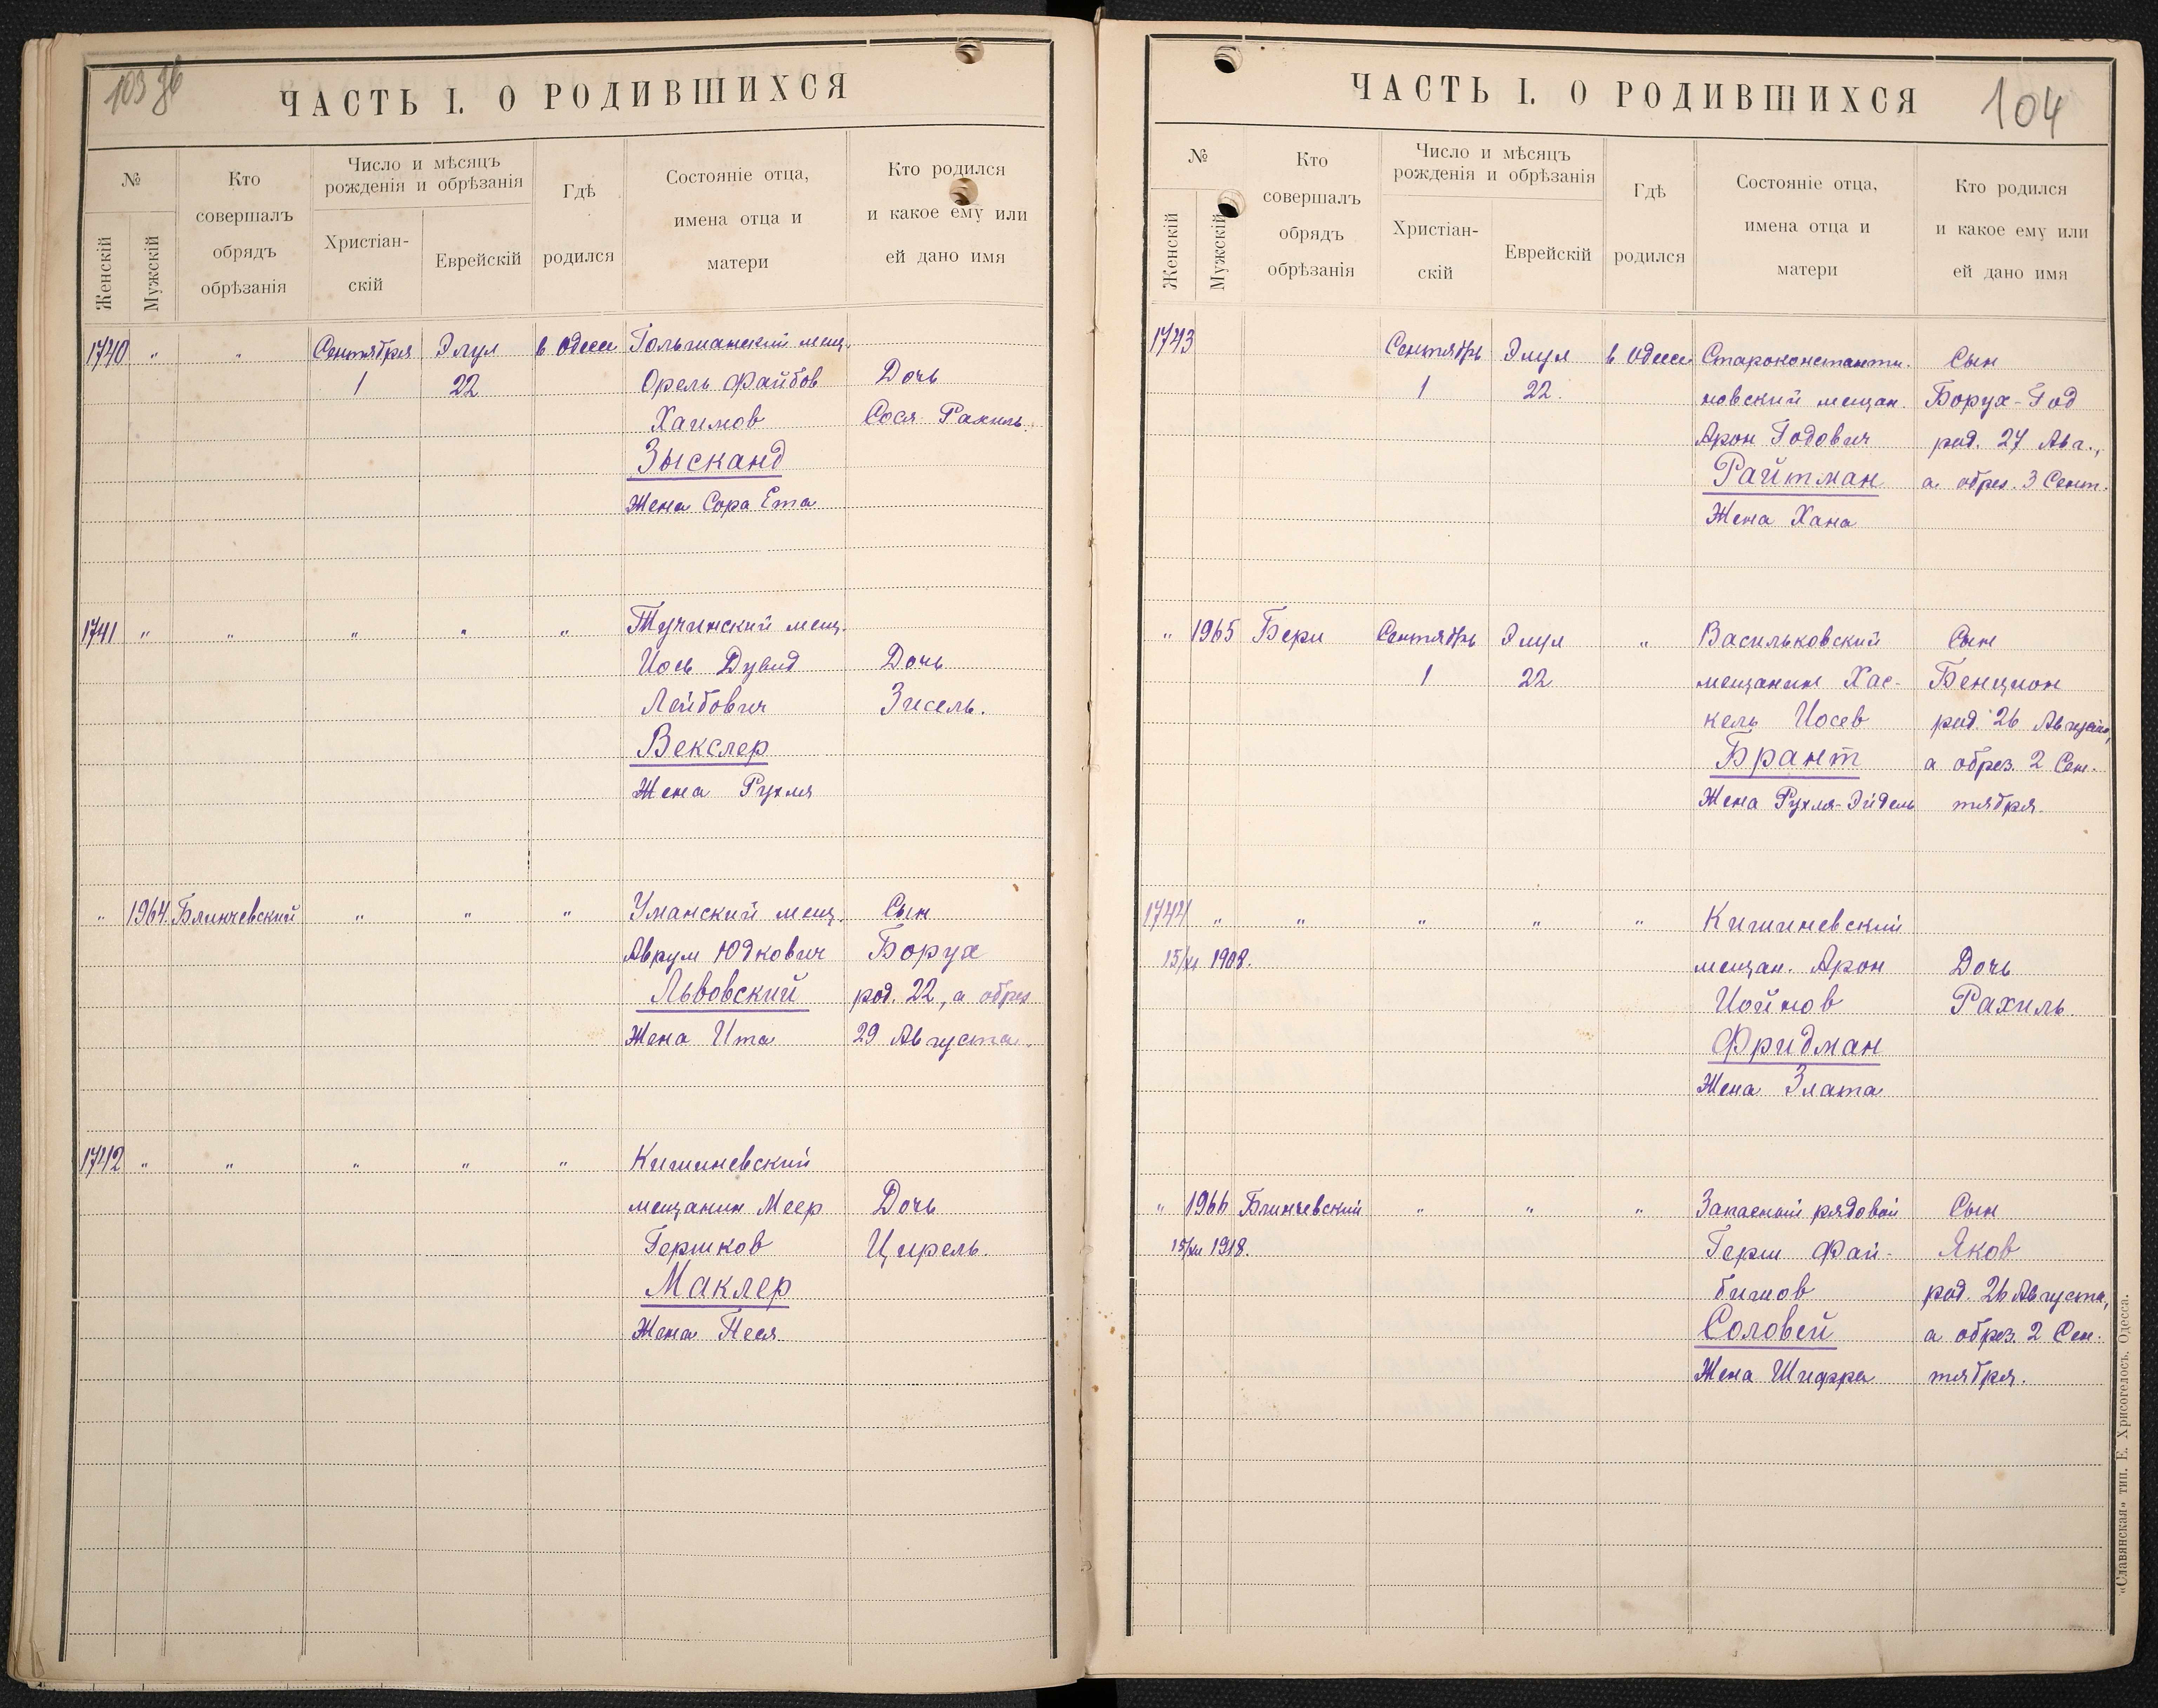 ЧАСТЬ I. О РОДИВШИХСЯ
№
Женскій
Мужскій
Кто
совершалъ
обрядъ
обрѣзанія
Число и мѣсяцъ
рожденія и обрѣзанія
Христіан-
скій
Еврейскій
Гдѣ
родился
Состояніе отца,
имена отца и
матери
Кто родился
и какое ему или
ей дано имя
1740 " " Сентября Элул в Одессе Гольшанский мещ.
1 22 Орель Файбов Дочь
Хаимов Сося Рахиль.
Зысканд
Жена Сора Ета
1741 " " " " " Тучинский мещ.
Иось Дувид Дочь
Лейбович Зисель.
Векслер
Жена Рухля
" 1964. Блинчевский " " " Уманский мещ. Сын
Аврум Юдкович Борух
Львовский род. 22, а обрез
Жена Ита 29 Августа.
1742 " " " " " Кишиневский
мещанин Меер Дочь
Гершков Цирель.
Маклер
Жена Песя
ЧАСТЬ I. О РОДИВШИХСЯ 104
№
Женскій
Мужскій
Кто
совершалъ
обрядъ
обрѣзанія
Число и мѣсяцъ
рожденія и обрѣзанія
Христіан-
скій
Еврейскій
Гдѣ
родился
Состояніе отца,
имена отца и
матери
Кто родился
и какое ему или
ей дано имя
1743 Сентябрь Элул в Одессе Староконстанти. Сын
1 22. новский мещан. Борух-Год
Арон Годович род. 27 Авг.,
Райтман а обрез. 3 Сент.
Жена Хана
" 1965 Бери Сентябрь Элул " Васильковский Сын
1 22 мещанин Хас- Бенцион
кель Иосев род. 26 Августа,
Брант а обрез. 2 Сен-
Жена Рухля-Эйдель тября.
1744 " " " " " Кишиневский
15/XI 1908. мещан. Арон Дочь
Иойнов Рахиль.
Фридман
Жена Злата
" 1966 Блинчевский " " " Запасный рядовой Сын
1918. Герш Фай- Яков
бишов род. 26 Августа,
Соловей а обрез. 2 Сен-
Жена Шифра тября.
«Славянская» тип. Е. Хрисогелосъ. Одесса.